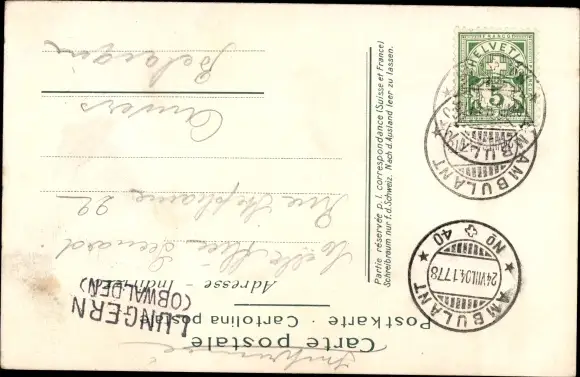 Carte postale
Postkarte · Cartolina postale
Adresse - Indirizzo
Imprimé
LUNGERN
(OBWALDEN)
Rue Stéphanie 22
Anvers
Belgien
Partie réservée p. l. correspondance (Suisse et France)
Schreibraum nur f. d. Schweiz. Nach d. Ausland leer zu lassen.
HELVETIA
5
AMBULANT
AMBULANT
No 40
24.VIII.04.1778